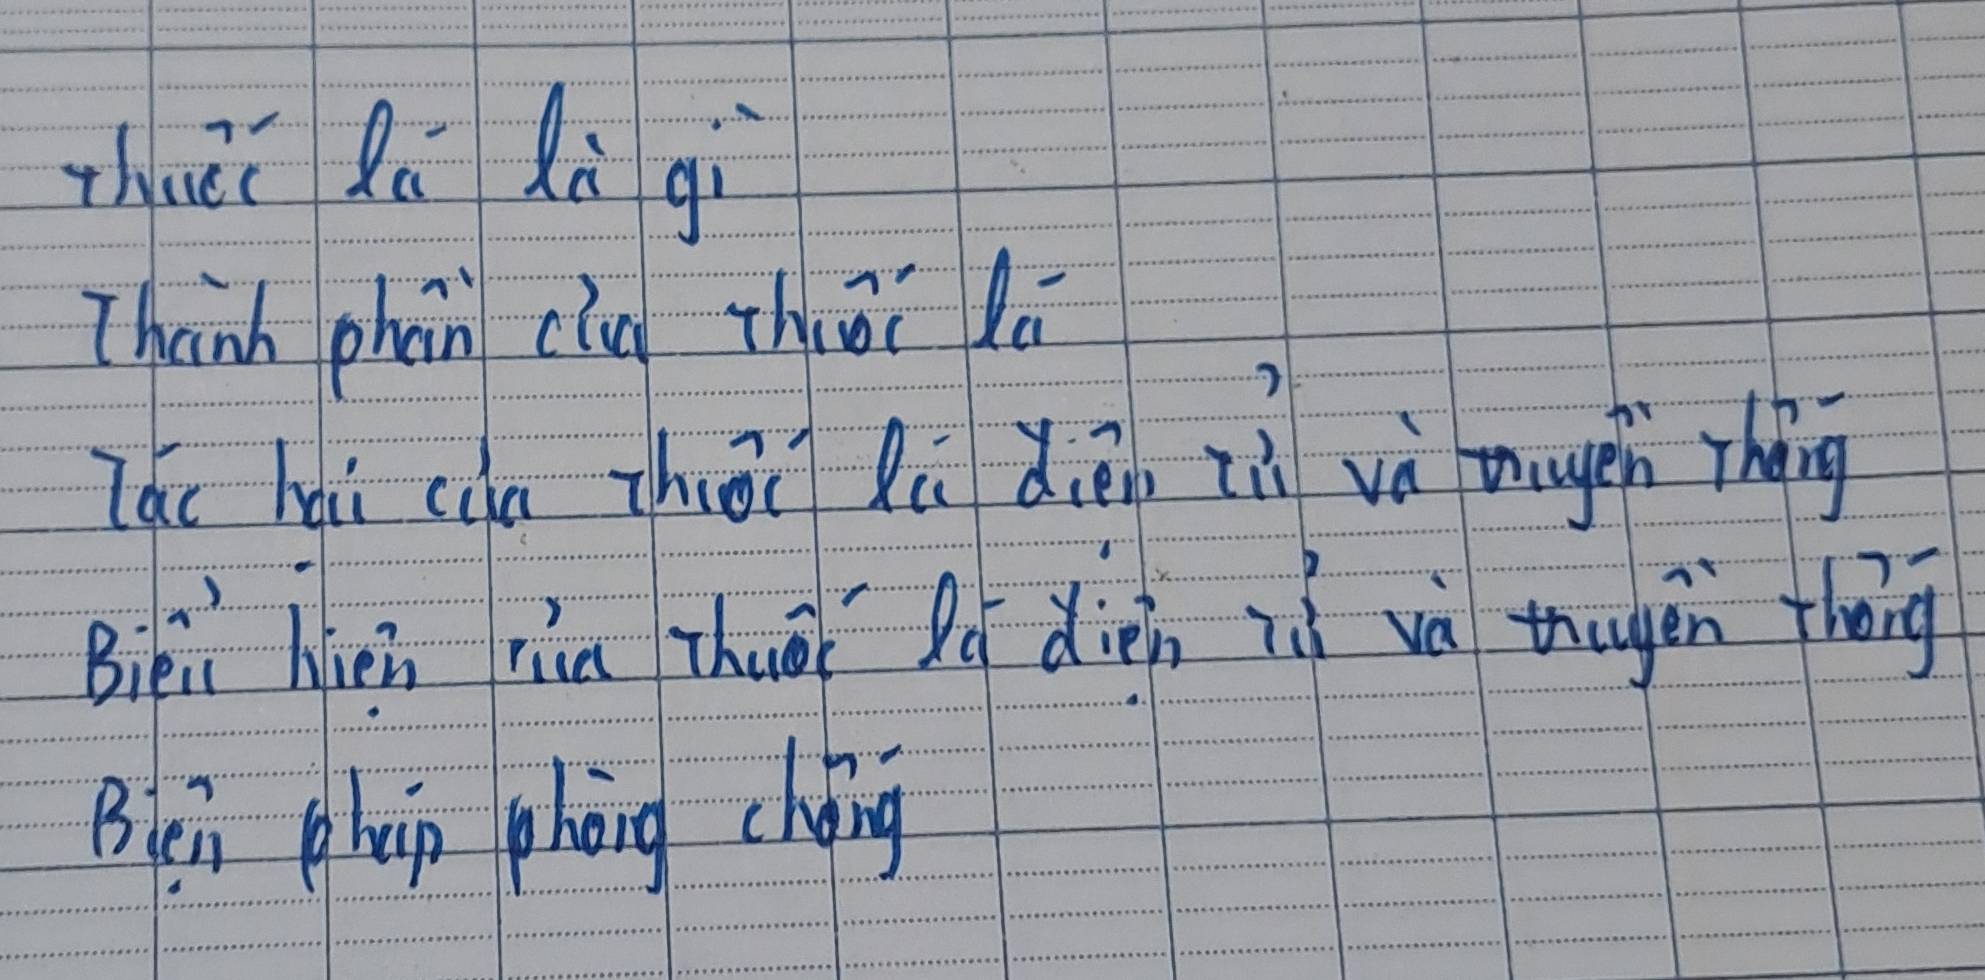 Thuốc lá là gì
Thành phần của thuốc lá
Tác hại của thuốc lá điện tử và truyền thống
Biểu hiện của thuốc lá điện tử và truyền thống
Biện pháp phòng chống